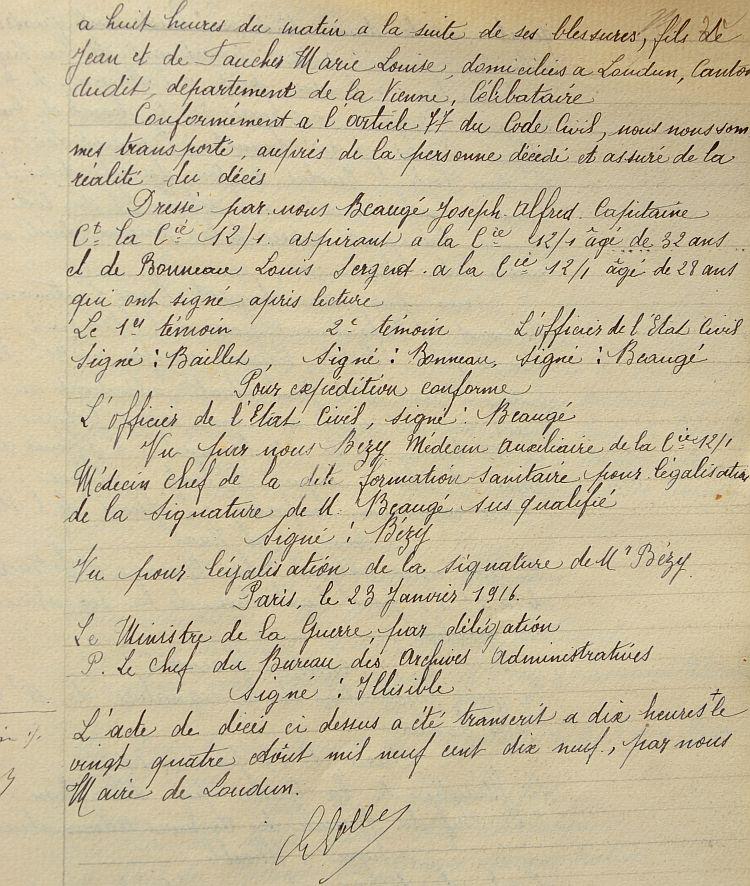 a huit heures du matin a la suite de ses blessures, fils de
Jean et de Faucher Marie Louise, domiciliés a Loudun, Canton
dudit, departement de la Vienne, Célibataire
Conformément a l'article 77 du Code Civil, nous nous som
mes transporté, auprés de la personne décédé et assuré de la
réalité du décés
Dressé par nous Beaugé Joseph Alfred Capitaine
Ct la Cie 12/1 aspirant a la Cie 12/1 âgé de 32 ans
et de Bonneau Louis Sergent a la Cie 12/1 âgé de 28 ans
qui ont signé aprés lecture
Le 1er témoin 2e témoin L'officier de l'Etat Civil
Signé : Baillet, Signé : Bonneau, signé : Beaugé
Pour expédition conforme
L'officier de l'Etat Civil, signé : Beaugé
Vu par nous Bézy Médecin Auxiliaire de la Cie 12/1
Médecin chef de la dite formation sanitaire pour légalisation
de la signature de M. Beaugé sus qualifié
Signé : Bézy
Vu pour légalisation de la signature de Mr Bézy
Paris, le 23 Janvier 1916.
Le Ministre de la Guerre, par délégation
P. Le chef du Bureau des Archives Administratives
Signé : Illisible
L'acte de décés ci dessus a été transcrit a dix heures + le
vingt quatre Août mil neuf cent dix neuf, par nous
Maire de Loudun.